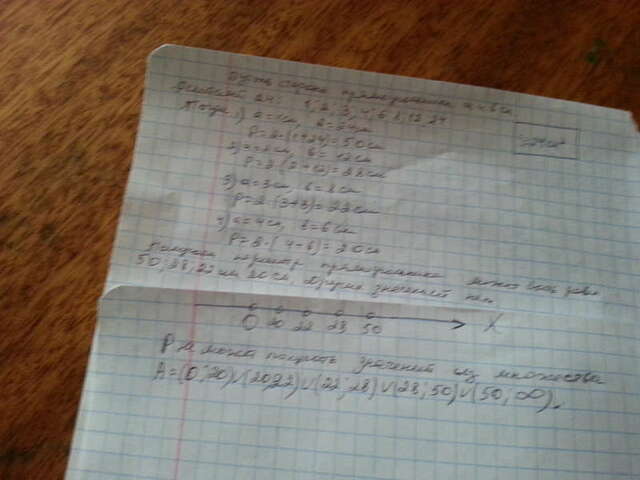 Пусть стороны прямоугольника a и b см.
Делители 24: 1, 2, 3, 4, 6, 8, 12, 24
Тогда 1) a=1см, b=24см
P=2·(1+24)=50см
2) a=2см, b=12см
P=2·(2+12)=28см
3) a=3см, b=8см
P=2·(3+8)=22см
4) a=4см, b=6см
P=2·(4+6)=20см
периметр прямоугольника может быть
50, 28, 22 или 20 см, других значений нет.
0 20 22 28 50 X
P не может принять значений из множества
A=(0;20)∪(20;22)∪(22;28)∪(28;50)∪(50;∞).